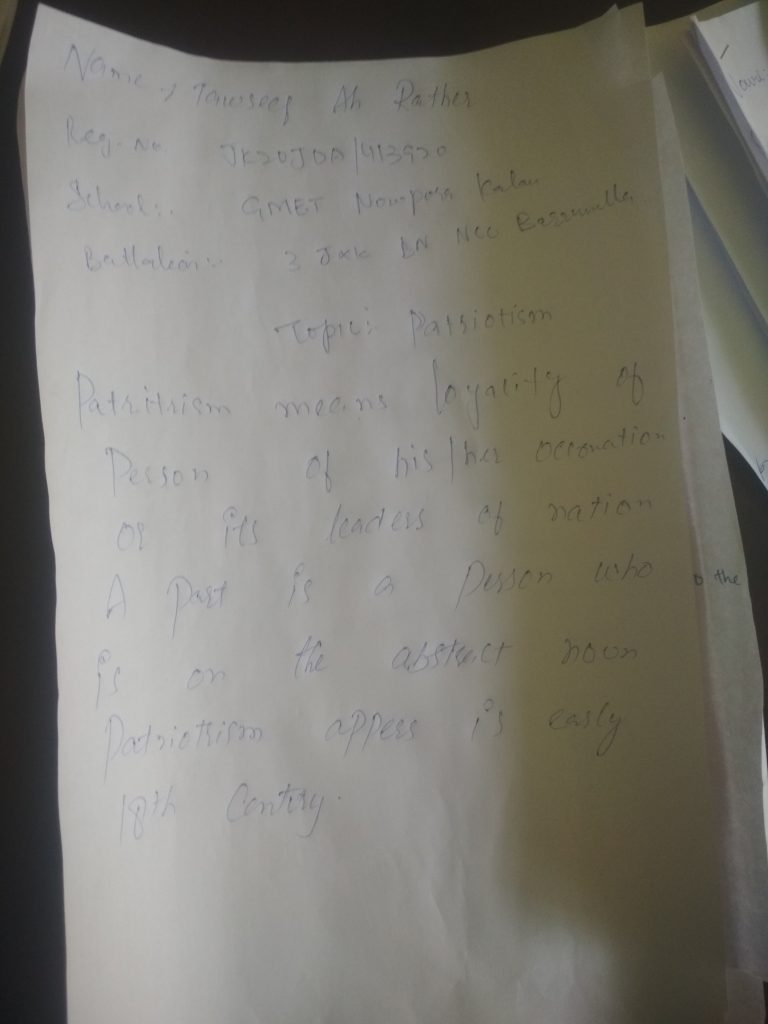 Name :- Tawseef Ah Rather
Reg. No JK20JDA/413920
School:. GMET Nowpora Kalan
Battalion:. 3 J&K BN NCC Barramulla
Topic: Patriotism
Patritrism means loyality of
Person of his/her
or its leaders of nation
A part is a person who
is on the abstract noun
Patriotrism appers is early
18th Centiry.
the